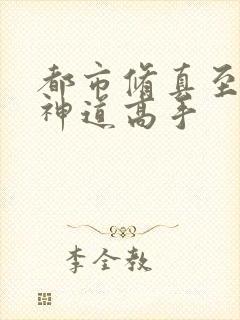 都市脩真至
神道高手
李全教